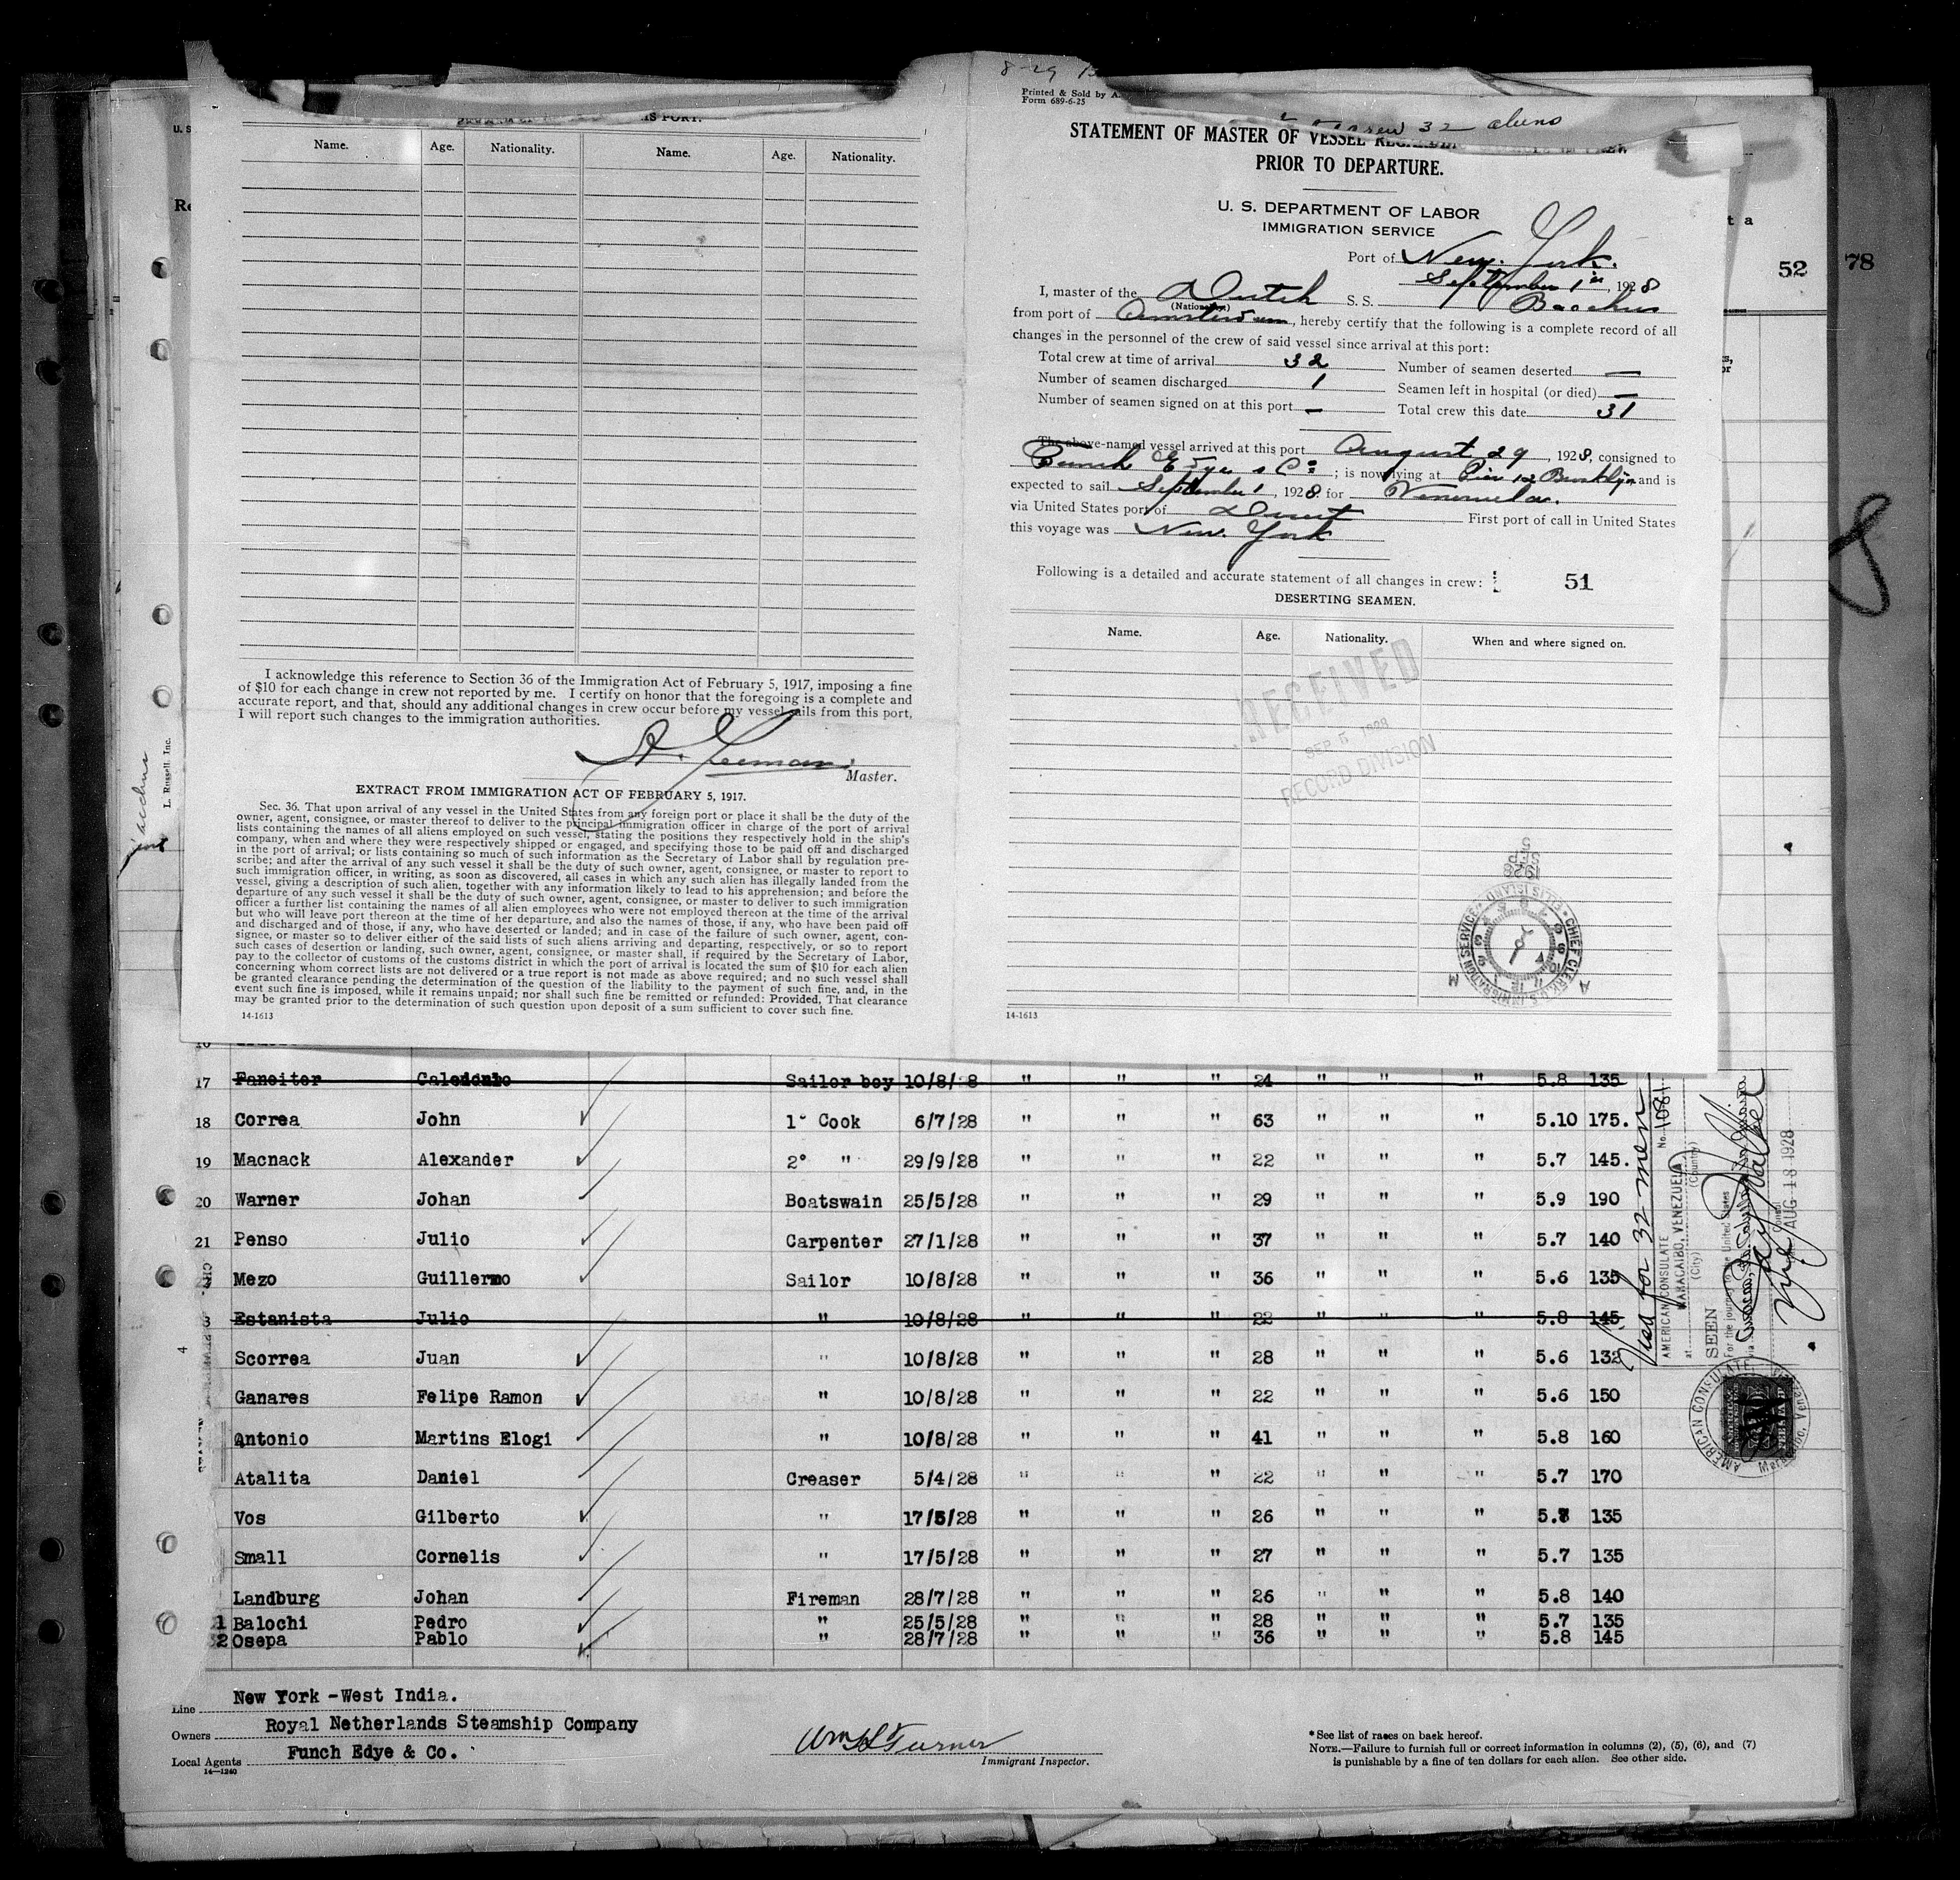 8-29
Printed & Sold by A.
Form 689-6-25
crew 32 aliens
IS PORT.
Name. Age. Nationality. Name. Age. Nationality.
I acknowledge this reference to Section 36 of the Immigration Act of February 5, 1917, imposing a fine
of $10 for each change in crew not reported by me. I certify on honor that the foregoing is a complete and
accurate report, and that, should any additional changes in crew occur before my vessel sails from this port,
I will report such changes to the immigration authorities.
Master.
EXTRACT FROM IMMIGRATION ACT OF FEBRUARY 5, 1917.
Sec. 36. That upon arrival of any vessel in the United States from any foreign port or place it shall be the duty of the
owner, agent, consignee, or master thereof to deliver to the principal immigration officer in charge of the port of arrival
lists containing the names of all aliens employed on such vessel, stating the positions they respectively hold in the ship's
company, when and where they were respectively shipped or engaged, and specifying those to be paid off and discharged
in the port of arrival; or lists containing so much of such information as the Secretary of Labor shall by regulation pre-
scribe; and after the arrival of any such vessel it shall be the duty of such owner, agent, consignee, or master to report to
such immigration officer, in writing, as soon as discovered, all cases in which any such alien has illegally landed from the
vessel, giving a description of such alien, together with any information likely to lead to his apprehension; and before the
departure of any such vessel it shall be the duty of such owner, agent, consignee, or master to deliver to such immigration
officer a further list containing the names of all alien employees who were not employed thereon at the time of the arrival
but who will leave port thereon at the time of her departure, and also the names of those, if any, who have been paid off
and discharged and of those, if any, who have deserted or landed; and in case of the failure of such owner, agent, con-
signee, or master so to deliver either of the said lists of such aliens arriving and departing, respectively, or so to report
such cases of desertion or landing, such owner, agent, consignee, or master shall, if required by the Secretary of Labor,
pay to the collector of customs of the customs district in which the port of arrival is located the sum of $10 for each alien
concerning whom correct lists are not delivered or a true report is not made as above required; and no such vessel shall
be granted clearance pending the determination of the question of the liability to the payment of such fine, and, in the
event such fine is imposed, while it remains unpaid; nor shall such fine be remitted or refunded: Provided, That clearance
may be granted prior to the determination of such question upon deposit of a sum sufficient to cover such fine.
14-1613
STATEMENT OF MASTER OF VESSEL
PRIOR TO DEPARTURE.
U. S. DEPARTMENT OF LABOR
IMMIGRATION SERVICE
Port of New York.
September 1st, 1928
I, master of the Dutch S. S. Bacchus
(Nationality)
from port of Amsterdam, hereby certify that the following is a complete record of all
changes in the personnel of the crew of said vessel since arrival at this port:
Total crew at time of arrival 32 Number of seamen deserted —
Number of seamen discharged 1 Seamen left in hospital (or died) —
Number of seamen signed on at this port — Total crew this date 31
The above-named vessel arrived at this port August 29, 1928, consigned to
Funch Edye & Co; is now lying at Pier 12 Brooklyn and is
expected to sail September 1, 1928 for Venezuela.
via United States port of Direct First port of call in United States
this voyage was New York
Following is a detailed and accurate statement of all changes in crew: 51
DESERTING SEAMEN.
Name. Age. Nationality. When and where signed on.
RECEIVED
SEP 5 1928
RECORD DIVISION
1928
SEP
5
CHIEF CLERK, U.S. IMMIGRATION SERVICE ELLIS ISLAND
14-1613
52
78
8
L. Russell, Inc.
17 Faneiter Sailor boy 10/8/28 " " " 24 " " " 5.8 135
18 Correa John 1° Cook 6/7/28 " " " 63 " " " 5.10 175.
19 Macnack Alexander 2° " 29/9/28 " " " 22 " " " 5.7 145.
20 Warner Johan Boatswain 25/5/28 " " " 29 " " " 5.9 190
21 Penso Julio Carpenter 27/1/28 " " " 37 " " " 5.7 140
Mezo Guillermo Sailor 10/8/28 " " " 36 " " " 5.6 135
3 Estanista Julio " 10/8/28 " " " 22 " " " 5.8 145.
Scorrea Juan " 10/8/28 " " " 28 " " " 5.6 132
Ganares Felipe Ramon " 10/8/28 " " " 22 " " " 5.6 150
Antonio Martins Elogi " 10/8/28 " " " 41 " " " 5.8 160
Atalita Daniel Creaser 5/4/28 " " " 22 " " " 5.7 170
Vos Gilberto " 17/5/28 " " " 26 " " " 135
Small Cornelis " 17/5/28 " " " 27 " " " 5.7 135
Landburg Johan Fireman 28/7/28 " " " 26 " " " 5.8 140
1 Balochi Pedro " 25/5/28 " " " 28 " " " 5.7 135
32 Osepa Pablo " 28/7/28 " " " 36 " " " 5.8 145
Visa for 32 men
No. 1081
AMERICAN CONSULATE
at MARACAIBO, VENEZUELA
(City) (Country)
SEEN
For the journey to the United States
via
AUG 18 1928
AMERICAN CONSULATE
Maracaibo, Venezuela
Line New York - West India.
Owners Royal Netherlands Steamship Company
Local Agents Funch Edye & Co.
14—1240
Wm L Turner
Immigrant Inspector.
*See list of races on back hereof.
NOTE.—Failure to furnish full or correct information in columns (2), (5), (6), and (7)
is punishable by a fine of ten dollars for each alien. See other side.